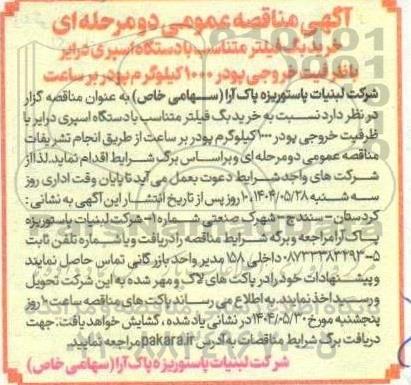 آگهی مناقصه عمومی دو مرحله ای
خرید بگ فیلتر متناسب با دستگاه اسپری درایر
با ظرفیت خروجی پودر ۱۰۰۰ کیلوگرم پودر بر ساعت
شرکت لبنیات پاستوریزه پاک آرا (سهامی خاص) به عنوان مناقصه گزار
در نظر دارد نسبت به خرید بگ فیلتر متناسب با دستگاه اسپری درایر با
ظرفیت خروجی پودر ۱۰۰۰ کیلوگرم پودر بر ساعت از طریق انجام تشریفات
مناقصه عمومی دو مرحله ای و بر اساس برگ شرایط اقدام نماید. لذا از
شرکت های واجد شرایط دعوت بعمل می آید تا پایان وقت اداری روز
سه شنبه ۱۴۰۴/۰۵/۲۸، ۱۰ روز پس از تاریخ انتشار این آگهی به نشانی :
کردستان - سنندج - شهرک صنعتی شماره ۱- شرکت لبنیات پاستوریزه
پاک آرا مراجعه و برگه شرایط مناقصه را دریافت و یا شماره تلفن ثابت
۵-۰۸۷۳۳۳۸۳۴۹۳ داخلی ۱۵۸ مدیر واحد بازرگانی تماس حاصل نمایند
و پیشنهادات خود را در پاکت های لاک و مهر شده به این شرکت تحویل
و رسید اخذ نمایند. به اطلاع می رساند پاکت های مناقصه ساعت ۱۰ روز
پنجشنبه مورخ ۱۴۰۴/۰۵/۳۰ در نشانی یاد شده ، گشایش خواهد یافت. جهت
دریافت برگ شرایط مناقصات به آدرس pakara.ir مراجعه نمایید
شرکت لبنیات پاستوریزه پاک آرا (سهامی خاص)